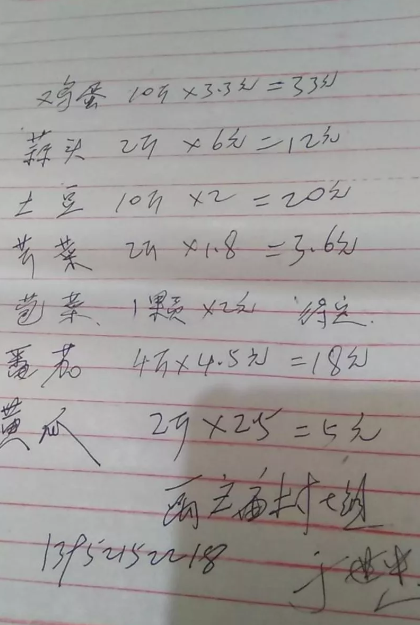 鸡蛋 10斤×3.3元=33元
蒜头 2斤×6元=12元
土豆 10斤×2=20元
芹菜 2斤×1.8=3.6元
苞菜 1颗×2元 待定.
番茄 4斤×4.5元=18元
黄瓜 2斤×2.5=5元
村七组
13952152218